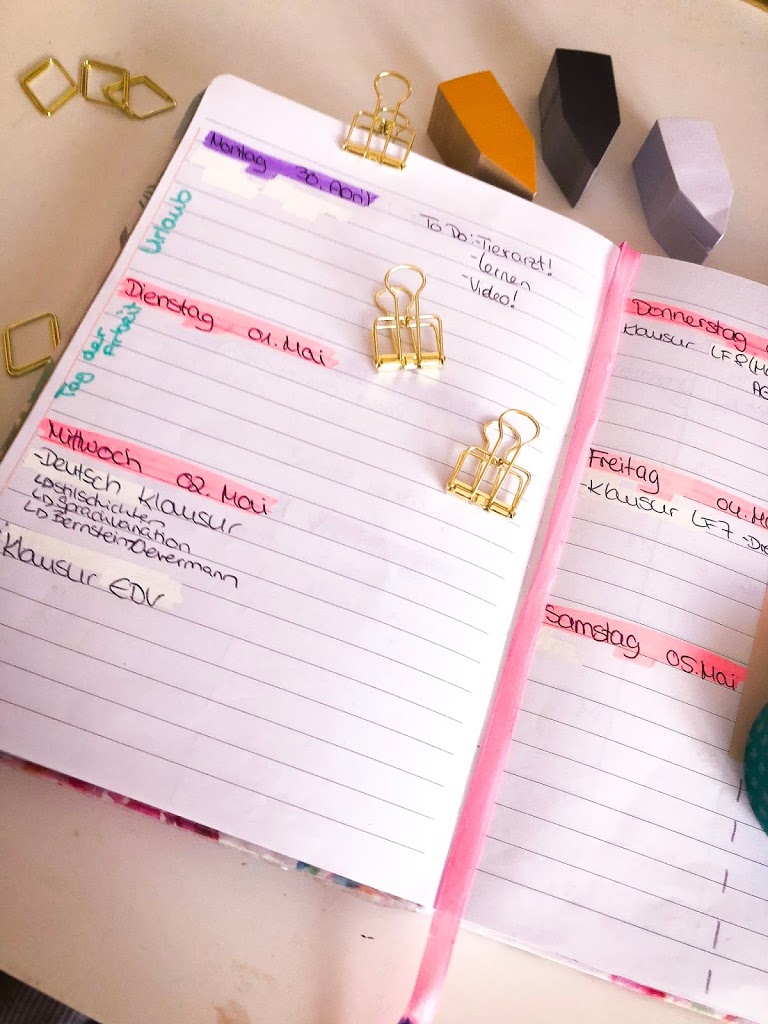 Montag 30. April
Urlaub
To Do: -Tierarzt!
-lernen
-Video!
Dienstag 01. Mai
Tag der
Arbeit
Mittwoch 02. Mai
-Deutsch Klausur
Stilschichten
Sprachvariation
Klausur EDV
Donnerstag
Klausur LF8
Freitag 04. Ma
-Klausur LF7
Samstag 05. Mai